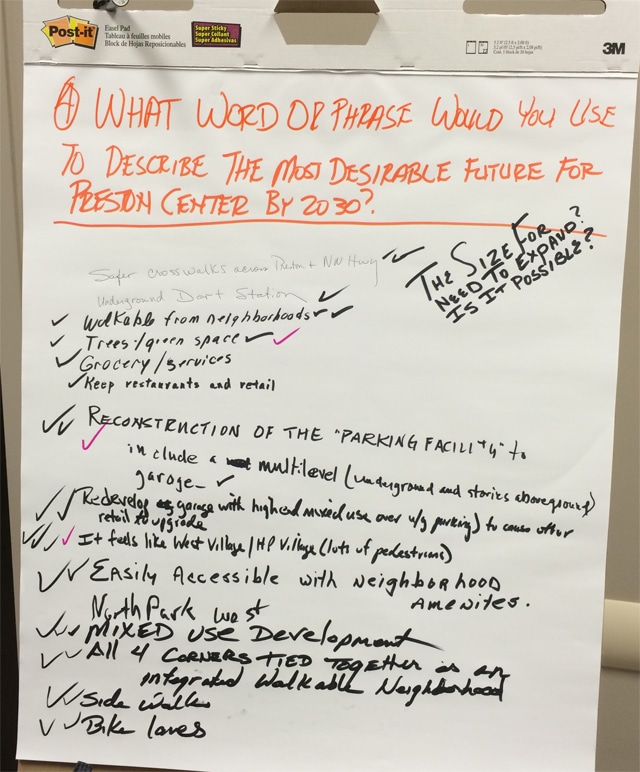 Post-it
Easel Pad
Tableau à feuilles mobiles
Block de Hojas Reposicionables
Super Sticky
Super Collant
Super Adhesivas
3M
④ WHAT WORD OR PHRASE WOULD YOU USE
TO DESCRIBE THE MOST DESIRABLE FUTURE FOR
PRESTON CENTER BY 2030?
THE SIZE FOR
NEED TO EXPAND?
IS IT POSSIBLE?
Safer crosswalks across Preston + NW Hwy ✓✓
Underground Dart Station ✓
✓ Walkable from neighborhoods ✓✓
✓ Trees/green space ✓ ✓
✓ Grocery/services
✓ Keep restaurants and retail
✓✓ RECONSTRUCTION OF THE "PARKING FACILITY" to
✓ include a multilevel (underground and stories aboveground)
garage ✓
✓✓ Redevelop garage with highend mixed use over u/g parking) to cause other
retail to upgrade
✓✓✓ It feels like West Village/HP Village (lots of pedestrians)
✓✓ EASILY ACCESSIBLE WITH NEIGHBORHOOD
AMENITES.
NorthPark West
✓✓ MIXED USE Development
✓✓ All 4 CORNERS TIED TOGETHER as an
integrated Walkable Neighborhood
✓✓ Side walks
✓✓ Bike lanes